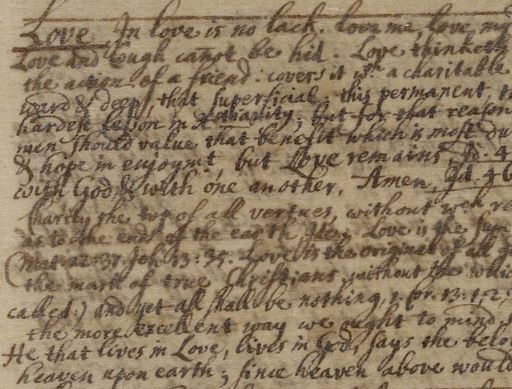 Love In love is no lack. love me, love my
Love and cough cannot be hid. Love thinketh
the action of a friend: covers it wth a charitable
ward & deep, that superficial: this permanent, t
hardest lesson in Xtianity; but for that reason
men should value that benefit which is most du
& hope in enjoymt, but Love remains. Jo. 4
with God & with one another, Amen, Id. 46
Charity the top of all vertues, without wch
as to the ends of the earth. Love is the sum
Mat. 22. 37. Joh. 13. 35. Love is the original of all
the mark of true Christians, without which
called.) and yet all shall be nothing, 1. Cor. 13. 1, 2,
the more excellent way we ought to mind.
He that lives in Love, lives in God, says the belo
heaven upon earth; since heaven above would